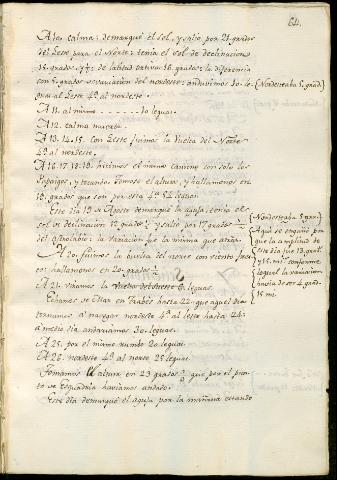 64.
A 10. calma: demarqué el sol, y salio por 21. grados
del Leste para el Norte: tenia el sol de declinacion
15. grados y ½: de latitud ortiva 16. grados: la diferencia
son 5. grados de variacion del nordeste: anduvimos 30. le-
guas al Leste 4ª al nordeste.
(Nordesteaba 5. grad.)
A 11. al mismo ........ 10 leguas.
A 12. calma muerta.
A 13. 14. 15. con Leste fuimos la vuelta del Norte
4ª al nordeste.
A 16. 17. 18. 19. hicimos el mismo camino con solo los
Papaigos, y tocando. Tomose el altura, y hallamonos en
18. grados que son por esta 4ª 52. leguas.
Este dia 19. de Agosto demarqué la aguja: tenia el
sol de declinacion 12. grados ½ y salió por 17. grados
del astrolabio la variacion fue la misma que atras.
(Nordesteaba 5. gra.)
Aqui se engañó por
que la amplitud de
este dia fue 13. grad.
y 15. mi.ˢ conforme
lo qual la variacion
hasta de ser 4. grad.
15. mi.
A 20. fuimos la vuelta del norte con viento fres-
co: hallamonos en 20. grados ½
A 21. viamos la vuelta del sueste 8. leguas.
Echamos de Mar en trabés hasta 22. que aquel dia
tornamos a navegar nordeste 4ª al leste hasta 24.
a medio dia andariamos 30. leguas.
A 25. por el mismo rumbo 20. leguas.
A 26. nordeste 4ª al norte 25 leguas.
Tomamos el altura en 23 grados ½ que por el pun-
to de Esquadria haviamos andado.
Este dia demarqué el aguja por la mañana estando